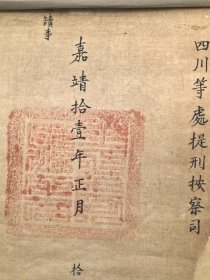 四川等處提刑按察司
嘉靖拾壹年正月　拾
讀事